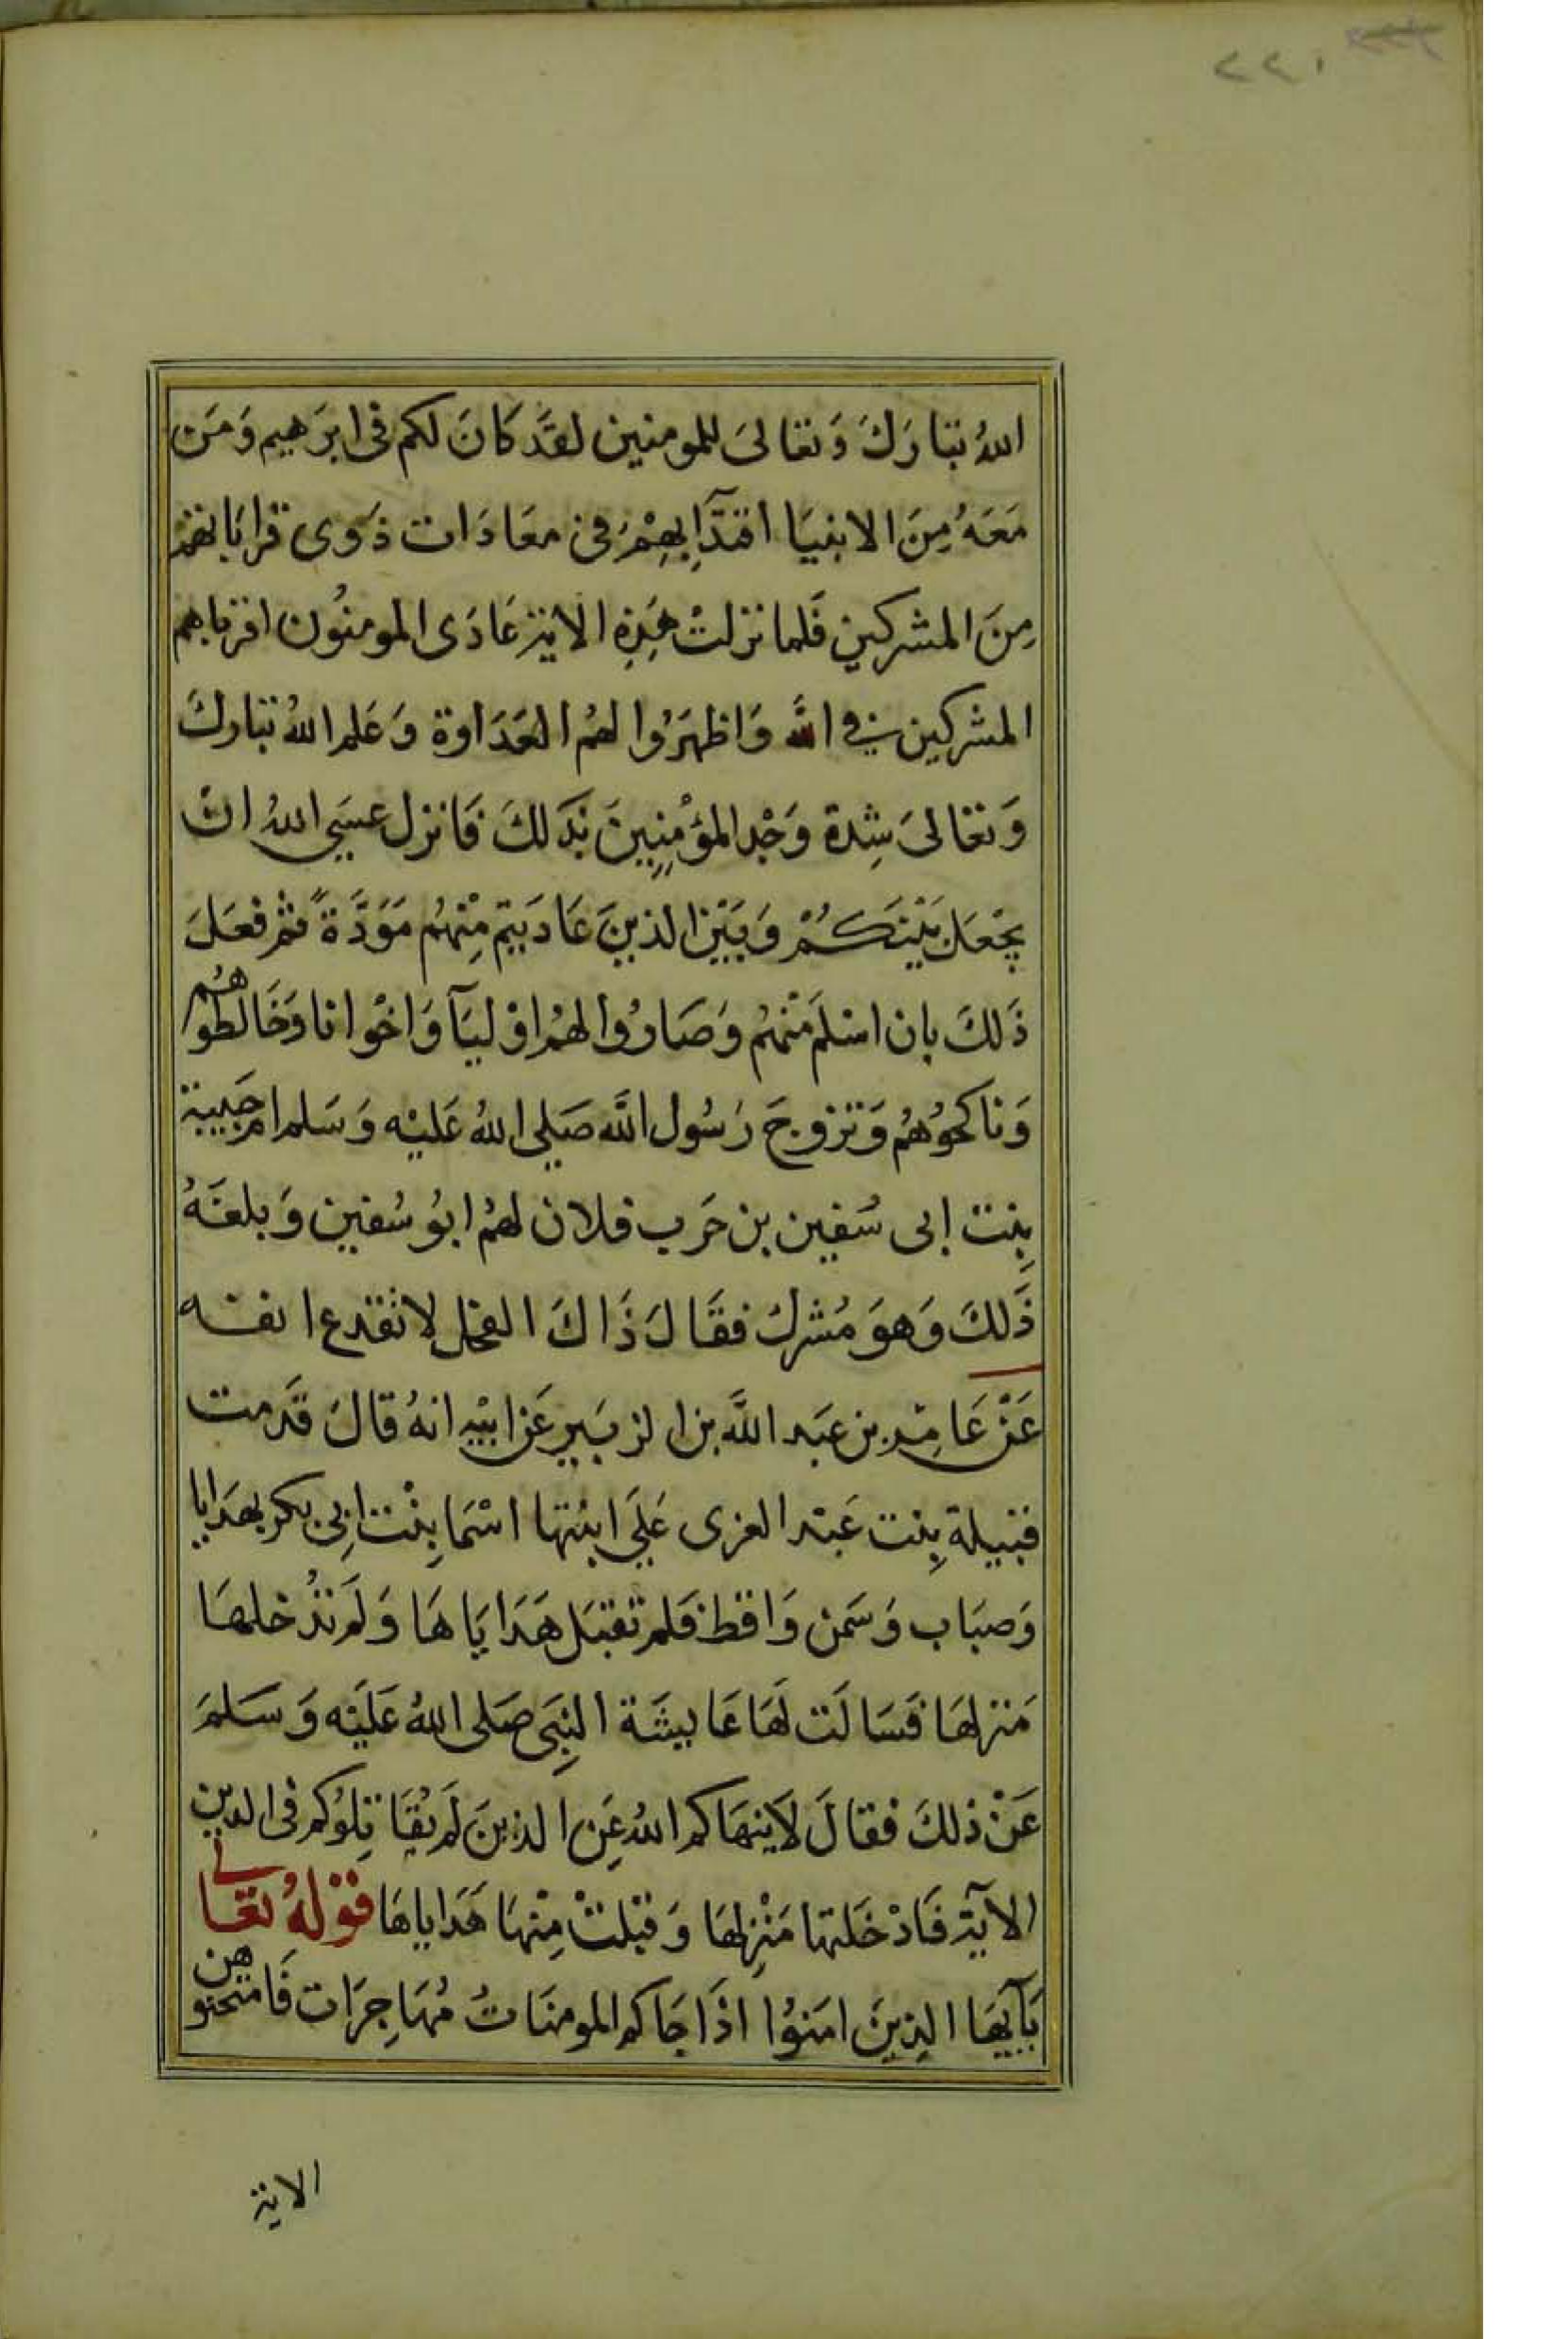 ٢٢١
اللهُ تبَارَكَ وَتعَالىَ للمومنين لقَد كَانَ لكم فى ابرَهيم وَمَن
مَعَهُ مِنَ الانبيَا اقتدَآ بِهِمْ فى معَادَات ذَوى قرابَاتهم
مِنَ المشركين فَلما نزلتْ هَذِهِ الاية عَادَى المومنُون اقرباهم
المشركين فى الله وَاظهَرُوا لهمُ العَدَاوة وَعَلم اللهُ تبَاركَ
وَتعَالىَ شِدة وَجْد المؤمِنِين بذَلكَ فَانزل عسَى اللهُ ان
يجْعَل بَيْنَكُمْ وَبَيْن الذينَ عَادَيتم مِنْهُم مَوَدَّةً ثم فعَلَ
ذَلكَ بان اسْلمَ مْنهُم وَصَارُوا لهمُ اوْليَآ وَاخْوانا وَخَالطوهُم
وَناكحُوهُم وَتزوجَ رَسُول اللَّه صَلى اللهُ عَليْه وَسَلم ام حَبيبة
بِنت ابى سُفين بن حَرب فلان لهمُ ابوُ سُفين وَبلغَهُ
ذَلكَ وَهوَ مُشرك فقَالَ ذَاكَ الفحل لا تقدع انفه
عَنْ عَامِر بن عبَد اللَّه بن الزبَير عَن ابيْهِ انهُ قالَ قَدمت
قتيلة بِنت عَبْد العزى عَلَى ابنتها اسْمَا بِنْت ابِى بكر بهدَايا
وَضبَاب وَسَمن وَاقط فلم تقبَل هَدَايَاهَا وَلَم تدُخلهَا
مَنزلهَا فسَالَت لهَا عَايشَة النِبَى صَلى اللهُ عَلَيْه وَسَلمَ
عَنْ ذلكَ فقالَ لاَ ينهَاكم اللهُ عَنِ الذينَ لَم يُقَاتِلوُكم فى الدين
الآية فَادْخَلتها مَنْزِلهَا وَقبْلتْ مِنْهَا هَدَاياهَا قوْلهُ تعَالى
يَآيهَا الذِينَ امَنوُا اذَا جَاكم المومنَاتُ مُهَاجِرَات فَامتحنوهن
الاية